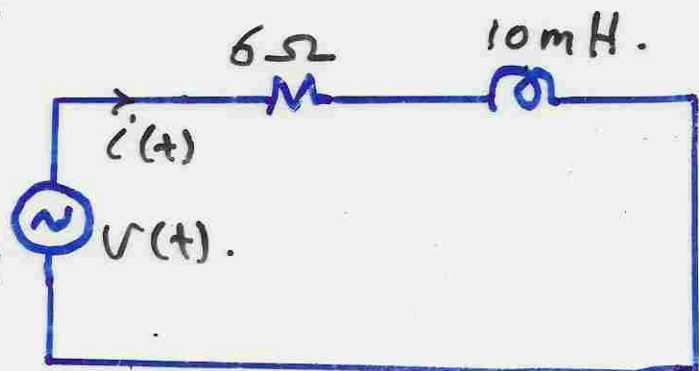 6 Ω 10 mH.
i(t)
V(t).